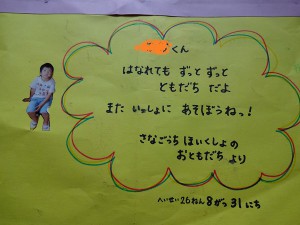 くん
はなれても ずっと ずっと
ともだち だよ
また いっしょに あそぼうねっ!
さなごうち ほいくしょの
おともだち より
へいせい26ねん 8がつ 31にち